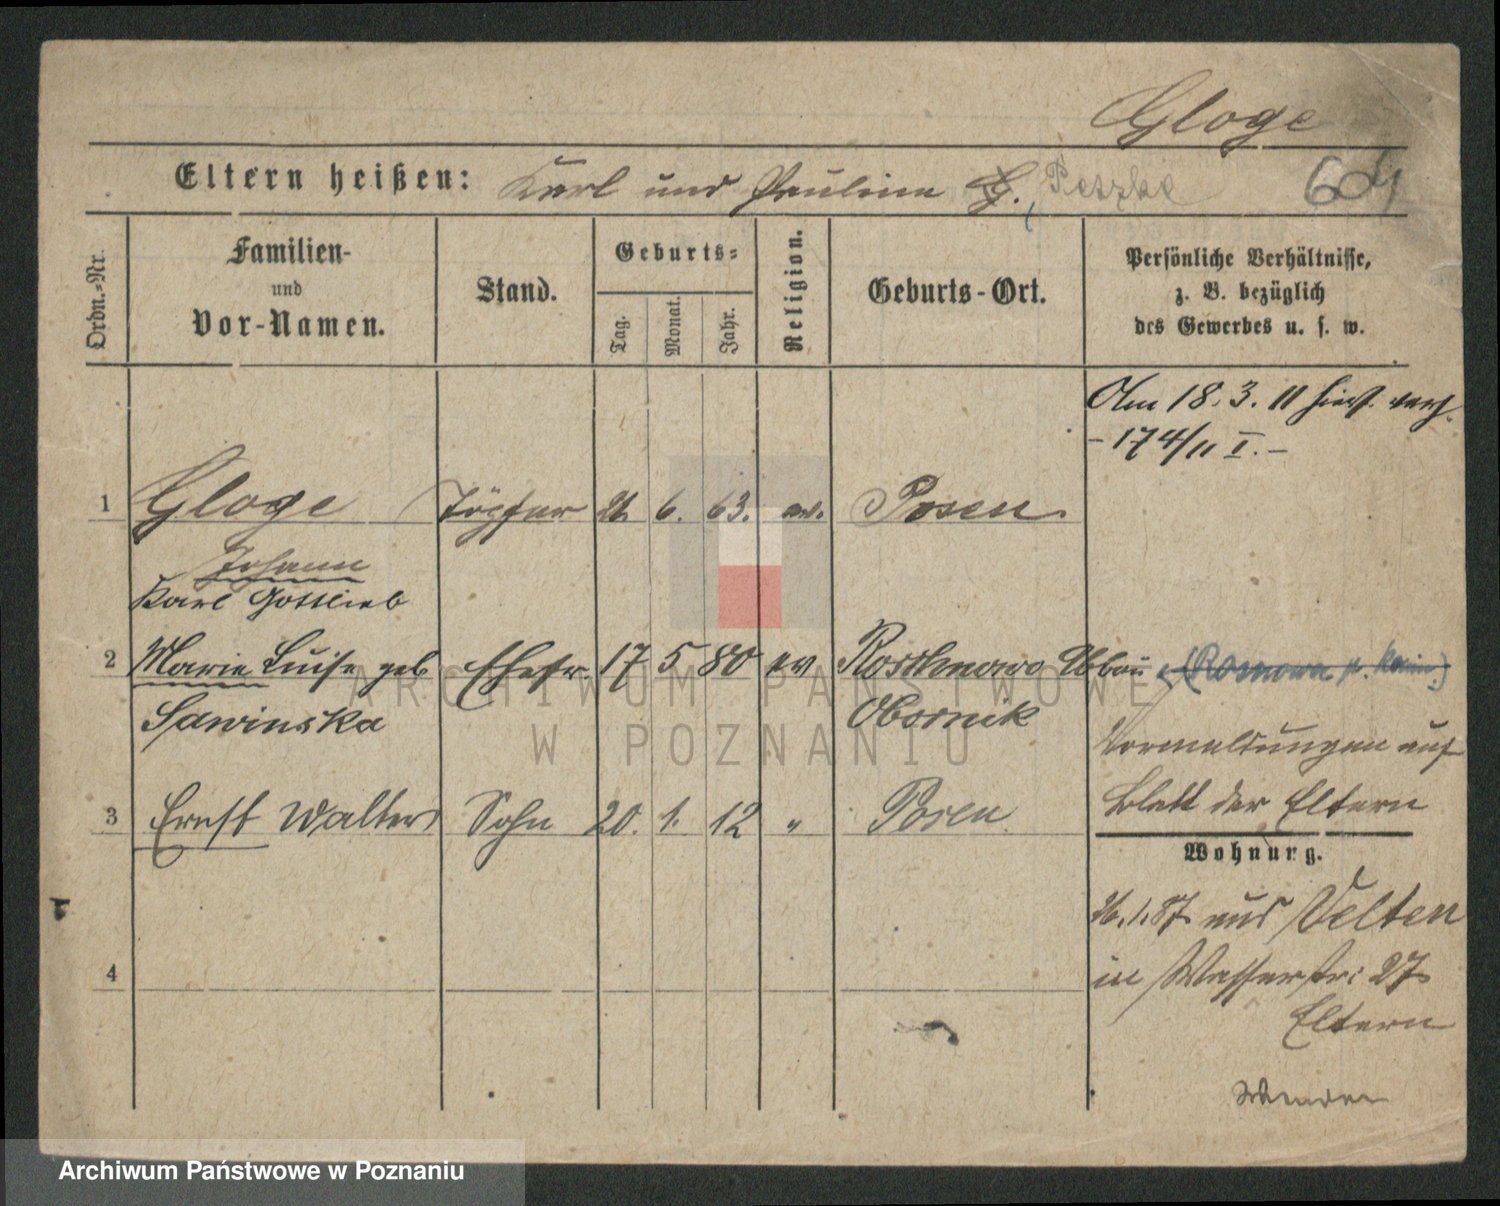 Gloge
Eltern heißen: Karl und Pauline G. Petzke
604
Ordn.-Nr.
Familien-
und
Vor-Namen.
Stand.
Geburts-
Tag.
Monat.
Jahr.
Religion.
Geburts-Ort.
Persönliche Verhältnisse,
z. B. bezüglich
des Gewerbes u. s. w.
Am 18. 3. 11 hierf. verh.
- 174/11 I. -
1 Gloge Töpfer 6. 63. ev. Posen.
Johann
Karl Gottlieb
2 Marie Luise geb Ehefr. 17 5 80 ev
Sawinska Obornik
Vermerkungen auf
Blatt der Eltern
3 Ernst Walter Sohn 20. 1. 12 " Posen
Wohnung.
1. 87 aus Velten
4
in Wasserstr: 27
Eltern
Wenden
ARCHIWUM PAŃSTWOWE
W POZNANIU
Archiwum Państwowe w Poznaniu